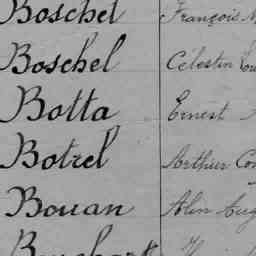 Boschet François
Boschel Célestin
Botta Ernest
Botrel Arthur
Bouan